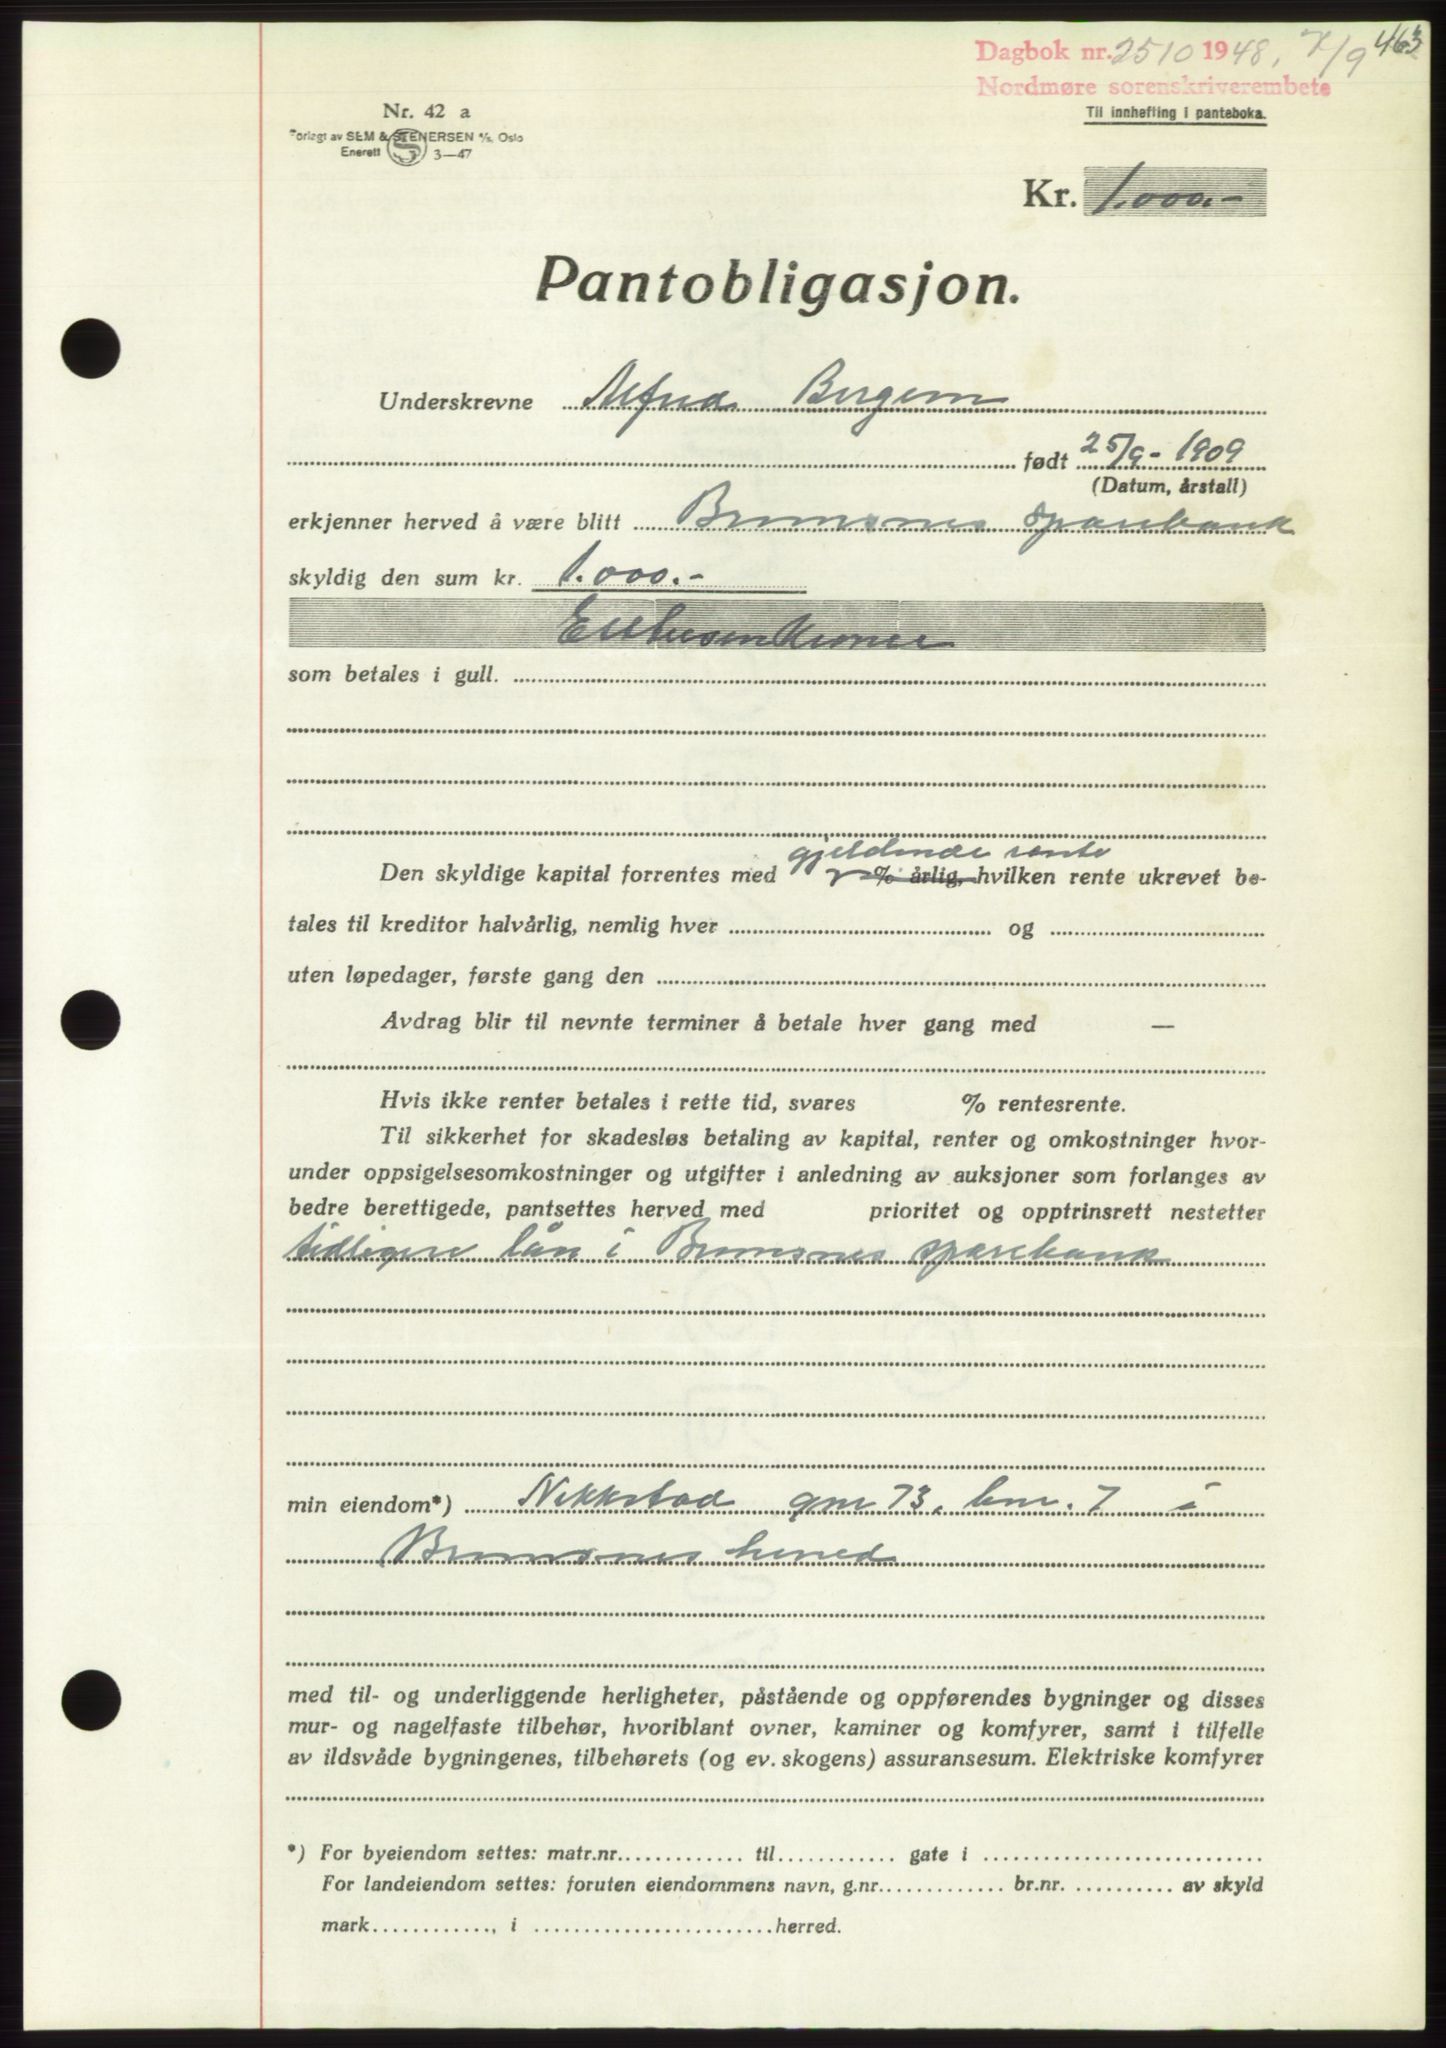 463
Dagbok nr. 2510 1948, 7/9
Nordmøre sorenskriverembete
Til innhefting i panteboka.
Nr. 42 a
Forlagt av SEM & STENERSEN A/S, Oslo
Enerett S 3—47
Kr. 1.000.-
Pantobligasjon.
Underskrevne Alfred Bergem
født 25/9-1909
(Datum, årstall)
erkjenner herved å være blitt Bremsnes sparebank
skyldig den sum kr. 1.000.-
Ettusen kroner
som betales i gull.
gjeldende rente
Den skyldige kapital forrentes med % årlig, hvilken rente ukrevet be-
tales til kreditor halvårlig, nemlig hver og
uten løpedager, første gang den
Avdrag blir til nevnte terminer å betale hver gang med —
Hvis ikke renter betales i rette tid, svares % rentesrente.
Til sikkerhet for skadesløs betaling av kapital, renter og omkostninger hvor-
under oppsigelsesomkostninger og utgifter i anledning av auksjoner som forlanges av
bedre berettigede, pantsettes herved med prioritet og opptrinsrett nestetter
tidligere lån i Bremsnes sparebank
min eiendom*) Nekkstad gnr 73, bnr. 7 i
Bremsnes herred
med til- og underliggende herligheter, påstående og oppførendes bygninger og disses
mur- og nagelfaste tilbehør, hvoriblant ovner, kaminer og komfyrer, samt i tilfelle
av ildsvåde bygningenes, tilbehørets (og ev. skogens) assuransesum. Elektriske komfyrer
*) For byeiendom settes: matr.nr. til gate i
For landeiendom settes: foruten eiendommens navn, g.nr. br.nr. av skyld
mark , i herred.